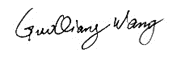 GuoQiang Wang